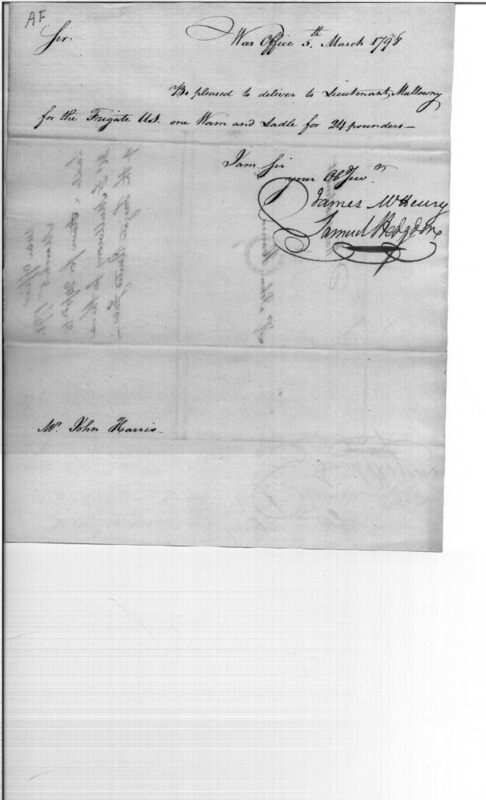 AF
Sir.
War Office 5th March 1798
Be pleased to deliver to Lieutenant Mullowny
for the Frigate U.S. one Worm and Ladle for 24 pounders—
I am Sir
your Ob Serv.t
James McHenry
Samuel Hodgdon
Mr John Harris